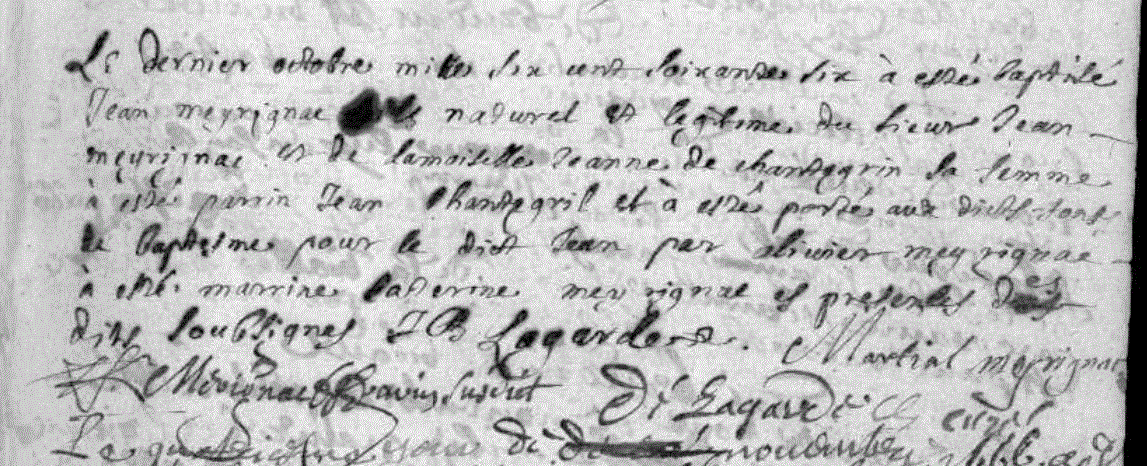 Le dernier octobre mille six cent soixante six à esté baptisé
Jean meyrignac naturel et legitime du sieur Jean
meyrignac et de lamoiselle Jeanne de chantegrin sa femme
à esté parrin Jean Chantegril et à esté porté aux dicts fonts
de baptesme pour le dict Jean par olivier meyrignac
à esté marrine Catherine meyrignac es presentes des
dits soubsignes J B Lagarde . Martial meyrignac
Mérignac suscrit De Lagarde curé
Le jour de novembre